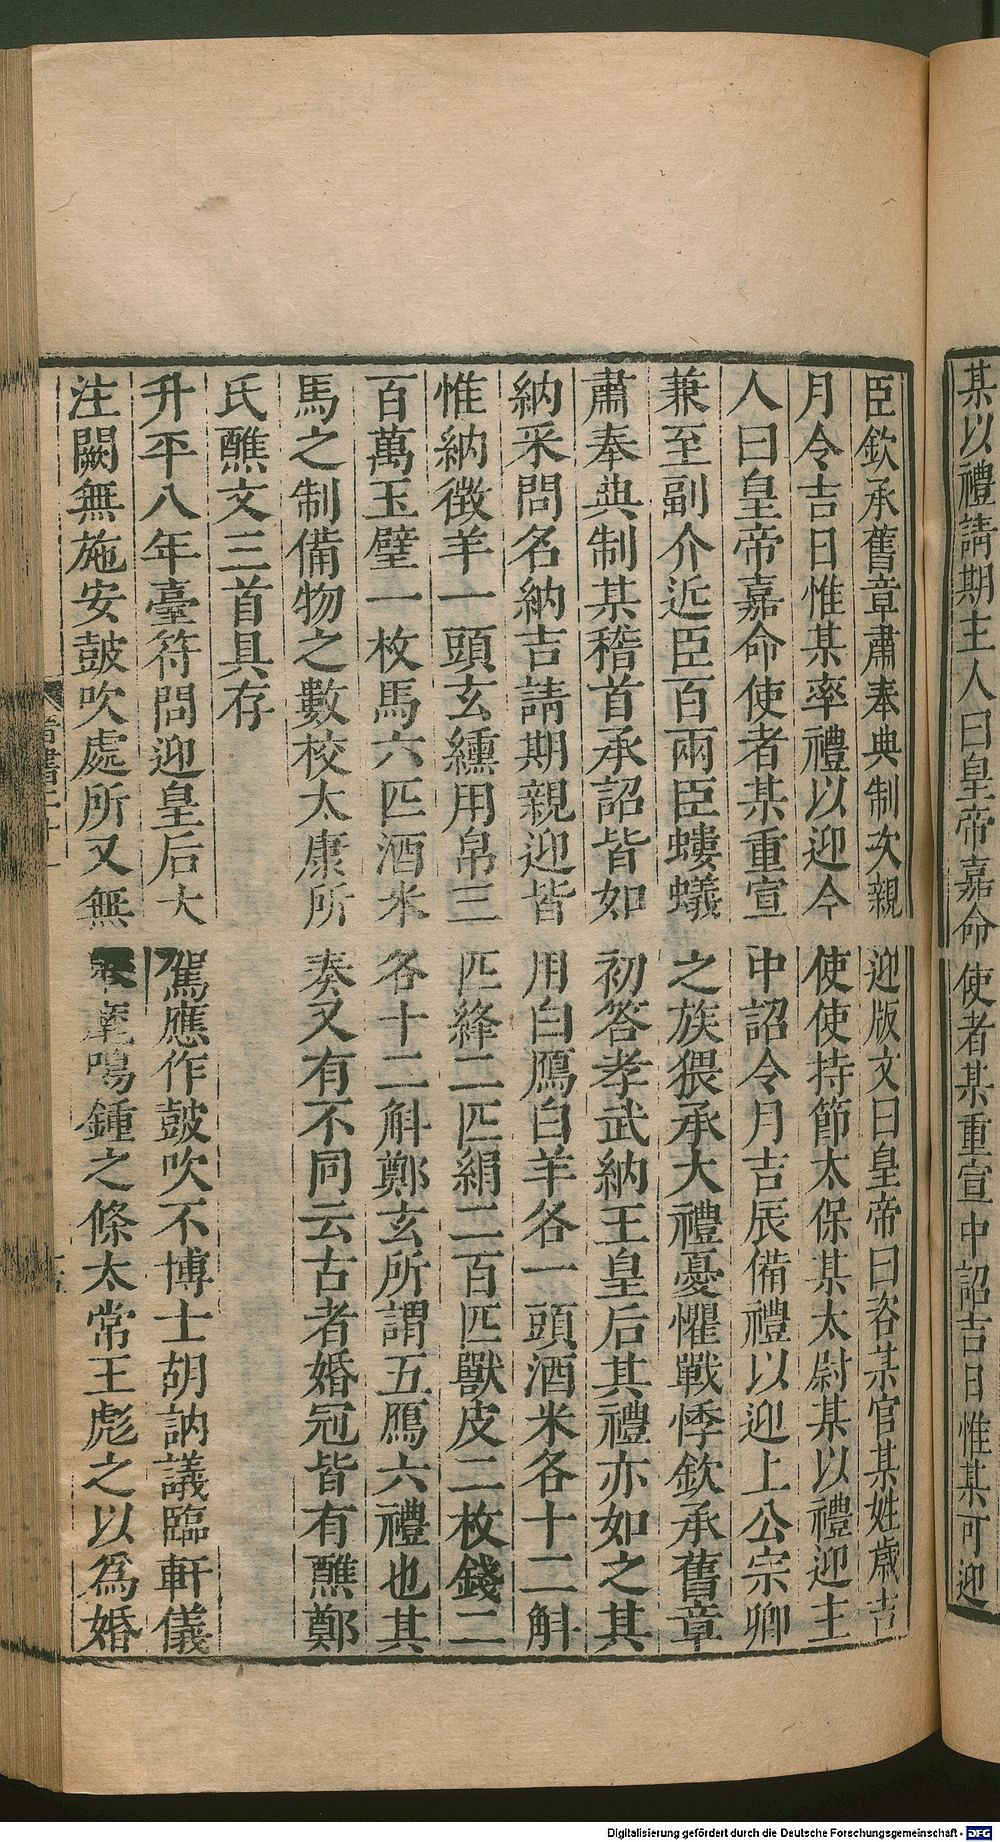 某以禮請期主人曰皇帝嘉命使者某重宣中詔吉日惟某可迎
臣欽承舊章肅奉典制次親迎版文曰皇帝曰咨某官某姓歲吉
月令吉日惟某率禮以迎今使使持節太保某太尉某以禮迎主
人曰皇帝嘉命使者某重宣中詔令月吉辰備禮以迎上公宗卿
兼至副介近臣百兩臣螻蟻之族猥承大禮憂懼戰悸欽承舊章
肅奉典制某稽首承詔皆如初答孝武納王皇后其禮亦如之其
納采問名納吉請期親迎皆用白鴈白羊各一頭酒米各十二斛
惟納徵羊一頭玄纁用帛三匹絳二匹絹二百匹獸皮二枚錢二
百萬玉璧一枚馬六匹酒米各十二斛鄭玄所謂五鴈六禮也其
馬之制備物之數校太康所奏又有不同云古者婚冠皆有醮鄭
氏醮文三首具存
升平八年臺符問迎皇后大駕應作鼓吹不博士胡訥議臨軒儀
注闕無施安鼓吹處所又無麾鳴鍾之條太常王彪之以爲婚
晉書二十一
Digitalisierung gefördert durch die Deutsche Forschungsgemeinschaft - DFG